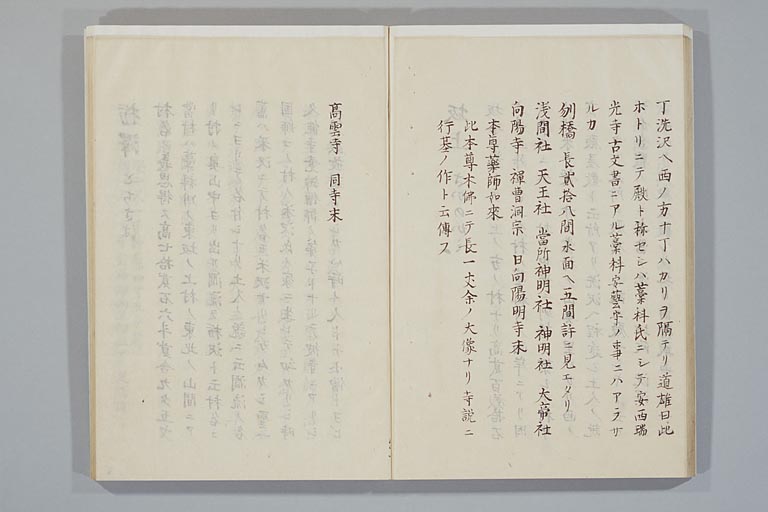 丁洗沢ヘ西ノ方十丁ハカリヲ隔テリ道雄曰此
ホトリニテ殿ト称セシハ藁科氏ニシテ安西瑞
光寺古文書ニアル藁科安藝守ノ事ニハアラサ
ルカ
刎橋 長貳拾八間 水面ヘ五間許ニ見エタリ
浅間社 天王社 當所神明社 神明社 大歳社
向陽寺 禅曹洞宗 日向陽明寺末
本尊薬師如来
此本尊木佛ニテ長一丈余ノ大像ナリ寺説ニ
行基ノ作ト云傳フ
高雲寺 同寺末